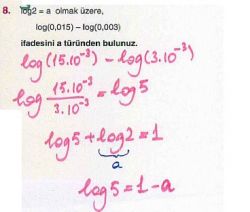 8. log2 = a olmak üzere,
log(0,015) – log(0,003)
ifadesini a türünden bulunuz.
log(15.10⁻³) – log(3.10⁻³)
log 15.10⁻³/3.10⁻³ = log5
log5 + log2 = 1
a
log5 = 1 - a